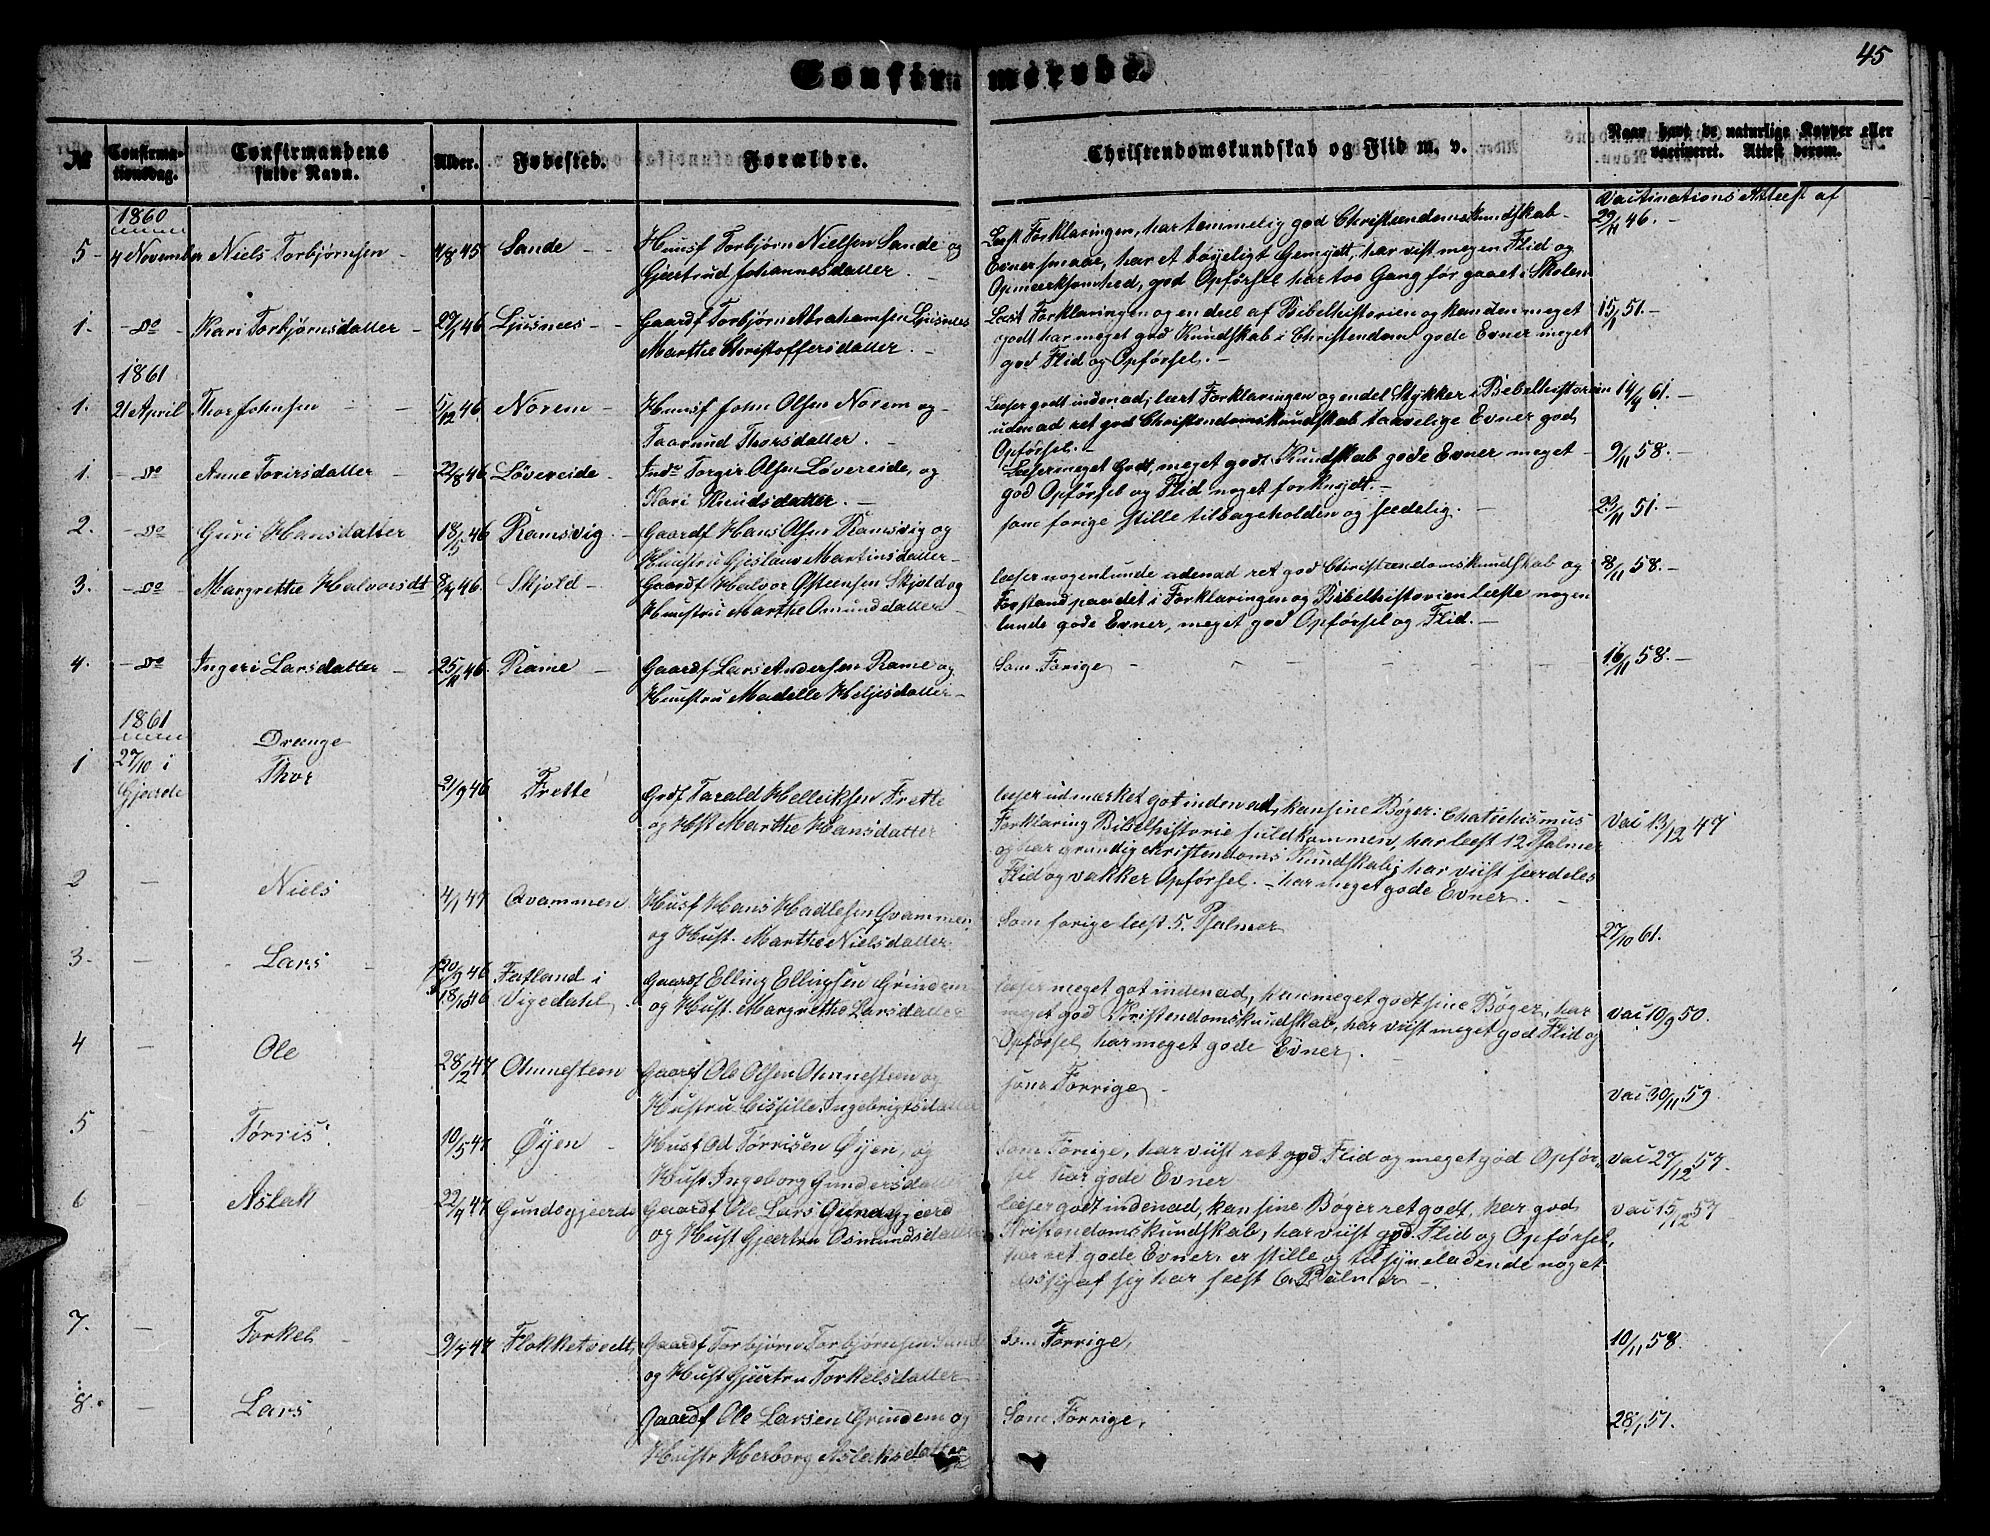 45
Confirmerede.
№
Confirma-
tionsdag.
Confirmandens
fulde Navn.
Alder.
Fødested.
Forældre.
Christendomskundskab og Flid m. v.
Naar havt de naturlige Kopper eller
vaccineret. Attest derom.
1860
Vactinations Attest af
5 4 November Niels Torbjørnsen 4/8 45 Sande Huusf Torbjørn Nielsen Sande og
Gjertrud Johannesdatter.
Læst Forklaringen, har temmelig god Christendomskundskab
Evner smaae, har et bøyeligt Gemyt, har vist megen Flid og
Opmærksomhed, god Opførsel har too Gang før gaaet i Skolen
29/11 46.
1. do Kari Torbjørnsdatter 29/1 46 Ljusnæs Gaardf Torbjørn Abrahamsen Ljusnæs
Marthe Christoffersdatter.
Læst Forklaringen og en deel af Bibelhistorien og kan den meget
godt har meget god Kundskab i Christendom gode Evner meget
god Flid og Opførsel.
15/1 51.
1861
1. 21 April Thor Johnsen 5/12 46. Norem Huusf John Olsen Norem og
Taarund Thorsdatter.
Læser godt indenad, lært Forklaringen og endel Stykker i Bibelhistorien
udenad ret god Christendomskundskab tarvelige Evner god
Opførsel.
14/4 61.
1. do Anne Torirsdatter 22/8 46 Løvereide Indr Torgir Olsen Løvereide, og
Kari Knudsdatter.
Læser meget Godt, meget godt Kundskab gode Evner meget
god Opførsel og Flid noget forknydt.
9/11 58.
2. do Guri Hansdatter 18/5 46 Ramsvig Gaardf Hans Olsen Ramsvig og
Hustru Martinsdatter
som forige stille tilbageholden og sædelig.
23/11 51.
3. do Margrethe Halvorsdt 46. Skjold Gaardf Halvor Østensen Skjold og
Hustru Marthe Omunddatter
læser nogenlunde udenad ret god Christendomskundskab og
Forstand paa det i Forklaringen og Bibelhistorien læste nogen
lunde gode Evner, meget god Opførsel og Flid.
8/11 58.
4. do Ingeri Larsdatter 25/11 46 Rame Gaardf Lars Andersen Rame og
Huustru Madelle Heljesdatter
Som Forige
16/11 58.
1861
Drenge
1 27/10 i
Gjerde
Thor 21/9 46 Frette Grdf Tarald Hellicksen Frette
og Hst Marthe Hansdatter
læser udmærket got indenad, kan sine Bøger: Chatichismus
Forklaring Bibelhistorie fuldkommen, har læst 12 Psalmer
og har grundig christendoms Kundskab; har viist særdeles
Flid og vakker Opførsel. har meget gode Evner.
Vac 13/12 47
2 Niels 4/1 47 Qvammen Husf Hans Hadlesen Qvammen,
og Hust. Marthe Nielsdatter.
Som forige læst 5. Psalmer
27/10 61.
3. Lars 20/9 46
18/10 46
Fatland i
Vigedahl
Gaardf Elling Ellingsen Grindem
og Hust. Margrethe Larsdatter
læser meget got indenad, kan meget godt sine Bøger, har
meget god Kristendomskundskab, har viist meget god Flid og
Opførsel, har meget gode Evner.
vac 10/9 50.
4 Ole 28/2 47 Omnesteen Gaardf Ole Olsen Omnesteen og
Hustru Cissille Ingebrigtsdatter
som Forrige
vac 30/11 59
5 Tørris 10/5 47 Øijen Husf Od Tørrisen Øijen, og
Hust Ingeborg Gundersdatter
Som Forrige, har viist ret god Flid og meget god Opfør-
sel har gode Evner
vac 27/12 57.
6 Aslak 22/4 47 Gundsgjærde Gaardf Ole Lars Gundsgjerd
og Hust Gjærtru Osmundsdatter
læser godt indenad, kan sine Bøger ret godt, har god
Kristendomskundskab, har viist god Flid og Opførsel,
har ret gode Evner, er stille og tilsyneladende noget
af sig har læst 6. Psalmer
vac 15/12 57
7. Torkel 9/7 47 Flokketvedt, Gaardf Torbjørn Torbjørnsen
og Hust Gjertru Torkelsdatter
som Forrige,
10/11 58.
8. Lars Gaardf Ole Larsen Grindem og
Hustr Herborg Aslaksdatter
Som Forrige,
28/1 51.